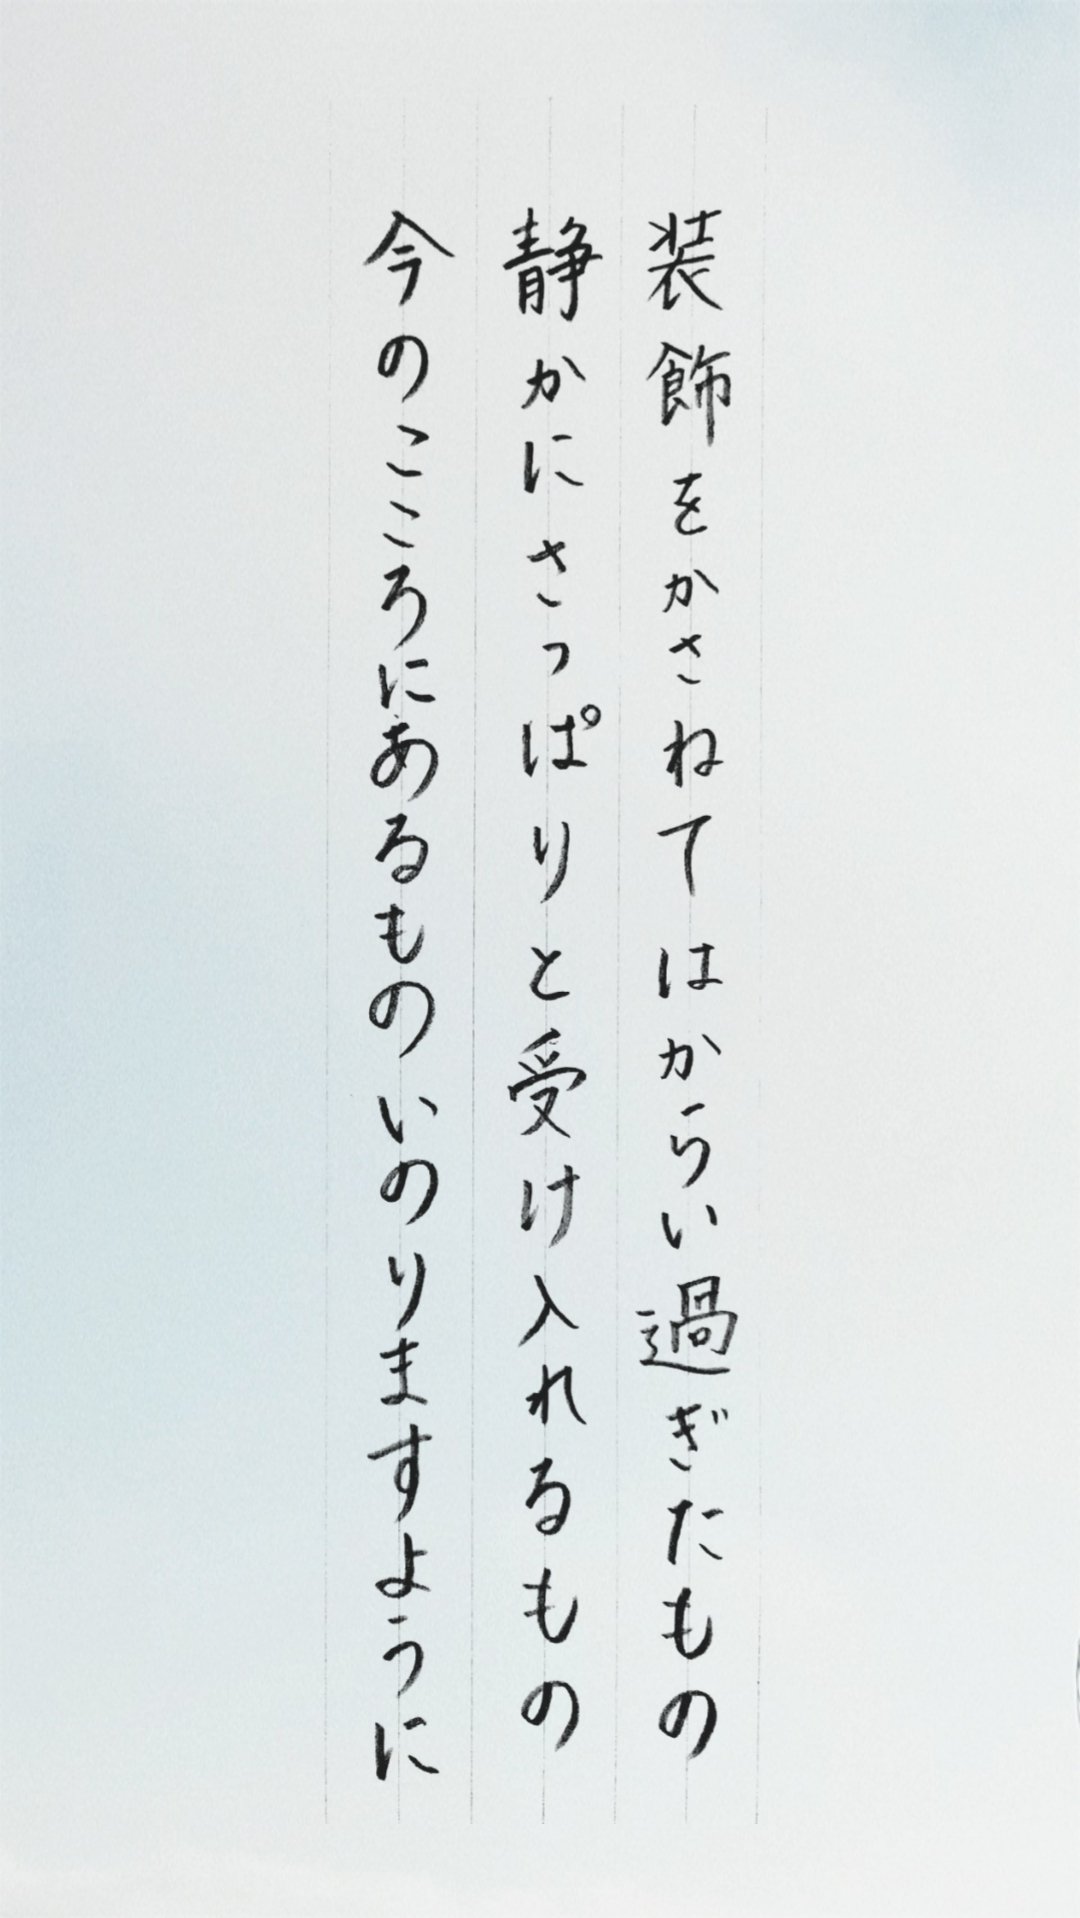 装飾をかさねてはからい過ぎたもの
静かにさっぱりと受け入れるもの
今のこころにあるものいのりますように